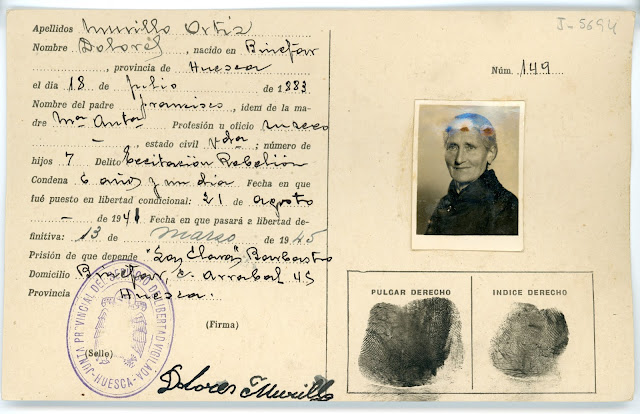 Apellidos Murillo Ortiz
Nombre Dolores, nacido en Binefar
, provincia de Huesca
el día 18 de julio de 1883
Nombre del padre Francisco, idem de la ma-
dre Mª Antª Profesión u oficio
, estado civil vda; número de
hijos 7 Delito Excitación Rebelión
Condena 6 años y un dia Fecha en que
fué puesto en libertad condicional: 21 de agosto
- de 1941 Fecha en que pasará a libertad de-
finitiva: 13 de marzo de 1945
Prisión de que depende "Las Claras" Barbastro
Domicilio Binefar c. Arrabal 45
Provincia Huesca.
(Firma)
(Sello)
JUNTA PROVINCIAL DEL SERVICIO DE LIBERTAD VIGILADA
-HUESCA-
Dolores Murillo
J-5694
Núm. 149
PULGAR DERECHO
INDICE DERECHO